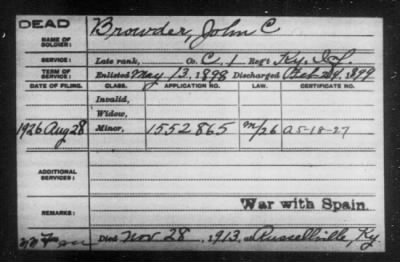 DEAD
NAME OF SOLDIER:
Browder, John C
SERVICE:
Late rank, Co. C, 1 Reg't Ky. Inf.
TERM OF SERVICE:
Enlisted May 13, 1898 Discharged Feb 24, 1899
DATE OF FILING. CLASS. APPLICATION NO. LAW. CERTIFICATE NO.
Invalid,
Widow,
1926 Aug 28 Minor, 1552865 m/26 a 5-18-27
ADDITIONAL SERVICES:
War with Spain.
REMARKS:
Died Nov 28, 1913, at Russellville, Ky.